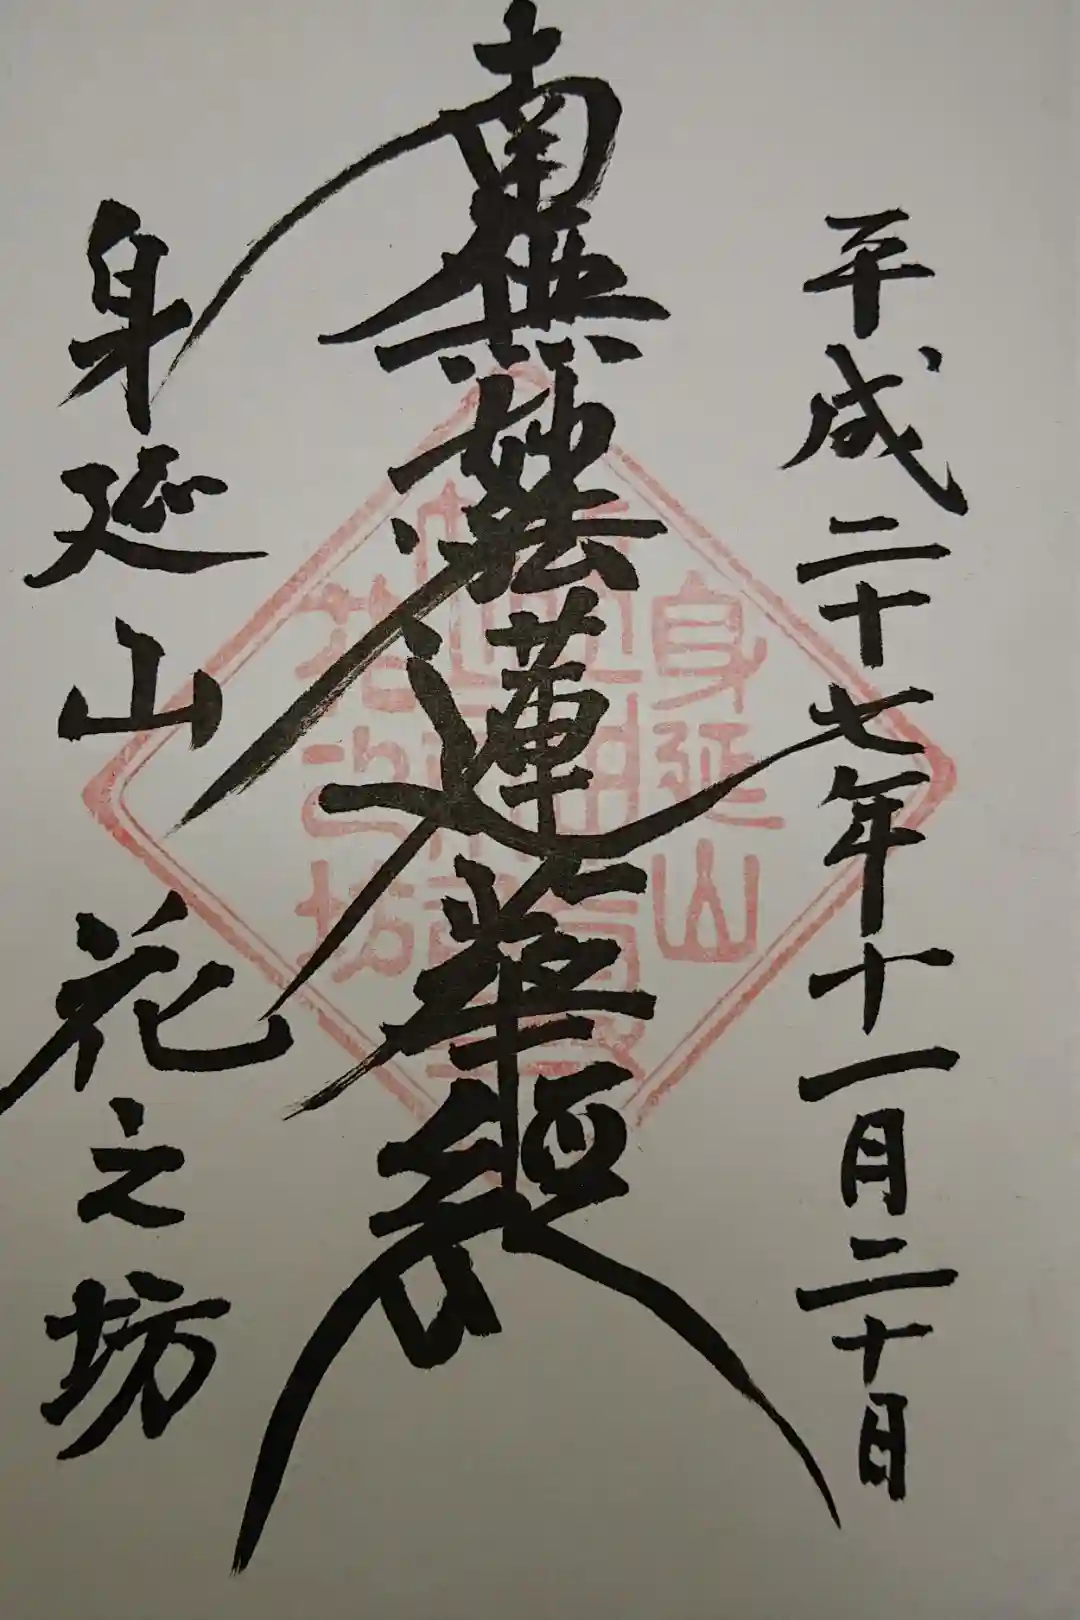 平成二十七年十一月二十日
南無妙法蓮華経
身延山花之坊
身延山
花之坊